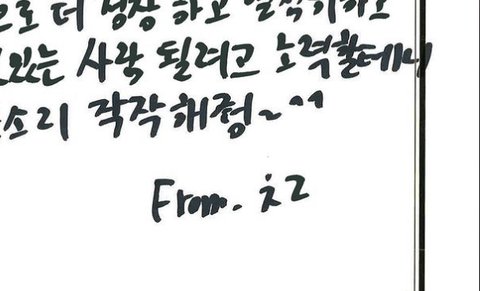 으로 더 성장하고
있는 사람 될려고 노력할테니
소리 작작해렁~^^
From.